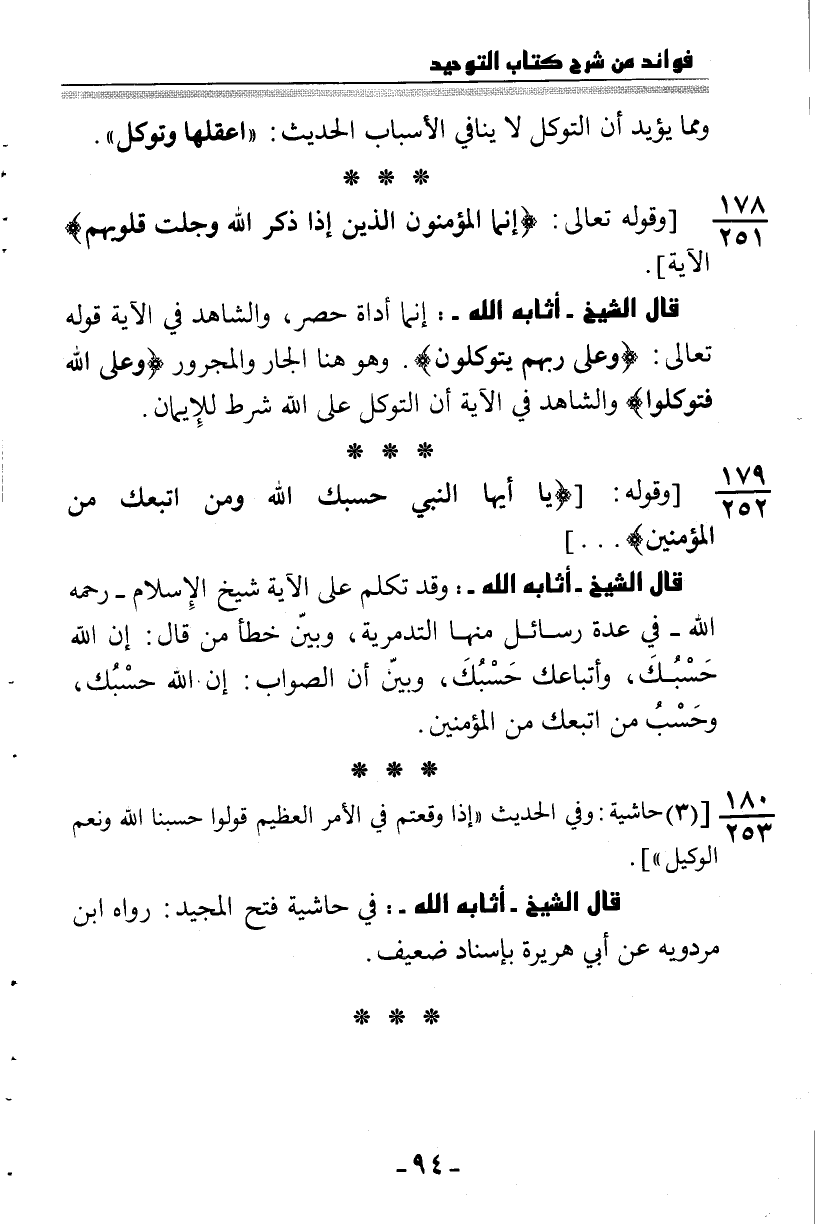 فوائد من شرح كتاب التوحيد
ومما يؤيد أن التوكل لا ينافي الأسباب الحديث: «اعقلها وتوكل».
* * *
١٧٨
٢٥١
[وقوله تعالى: ﴿إنما المؤمنون الذين إذا ذكر الله وجلت قلوبهم﴾
الآية].
قال الشيخ ـ أثابه الله ـ: إنما أداة حصر، والشاهد في الآية قوله
تعالى: ﴿وعلى ربهم يتوكلون﴾. وهو هنا الجار والمجرور ﴿وعلى الله
فتوكلوا﴾ والشاهد في الآية أن التوكل على الله شرط للإيمان.
* * *
١٧٩
٢٥٢
[وقوله: [﴿يا أيها النبي حسبك الله ومن اتبعك من
المؤمنين﴾...]
قال الشيخ ـ أثابه الله ـ: وقد تكلم على الآية شيخ الإسلام ـ رحمه
الله ـ في عدة رسائل منها التدمرية، وبينّ خطأ من قال: إن الله
حَسْبُكَ، وأتباعك حَسْبُكَ، وبينّ أن الصواب: إن الله حسْبُك،
وحَسْبُ من اتبعك من المؤمنين.
* * *
١٨٠
٢٥٣
[(٣)حاشية: وفي الحديث «إذا وقعتم في الأمر العظيم قولوا حسبنا الله ونعم
الوكيل»].
قال الشيخ ـ أثابه الله ـ: في حاشية فتح المجيد: رواه ابن
مردويه عن أبي هريرة بإسناد ضعيف.
* * *
ـ ٩٤ ـ